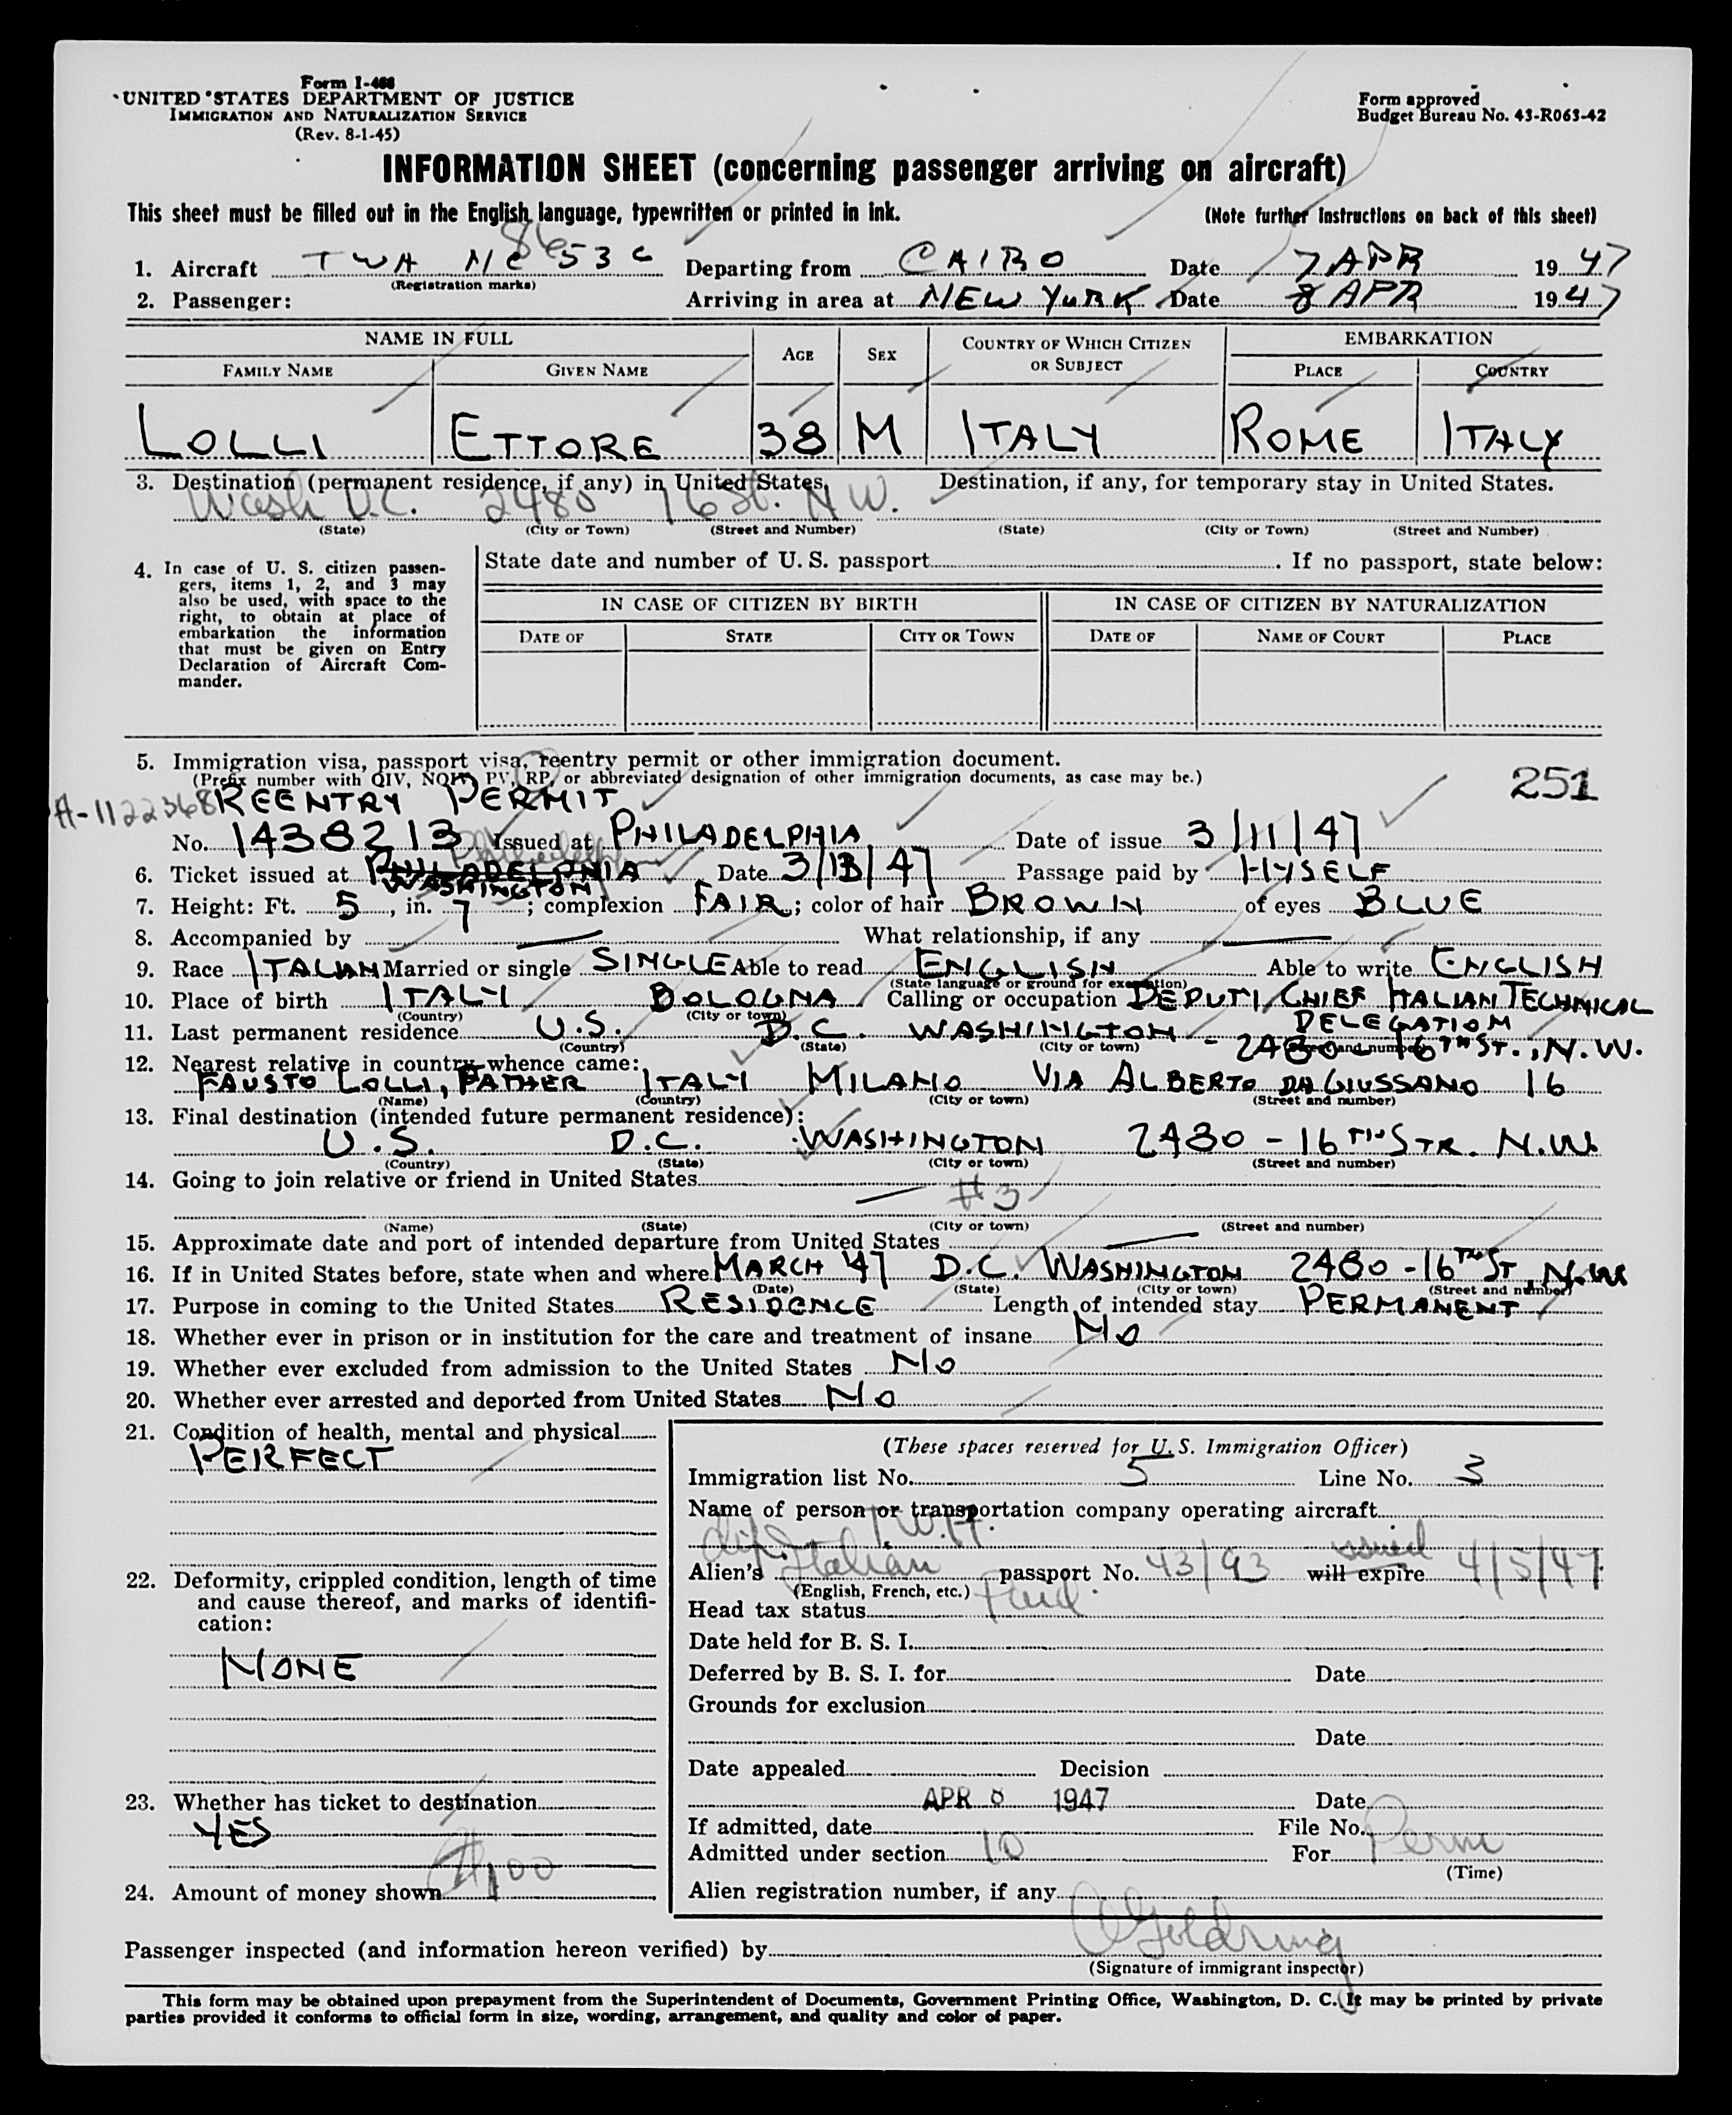 Form I-466
UNITED STATES DEPARTMENT OF JUSTICE
IMMIGRATION AND NATURALIZATION SERVICE
(Rev. 8-1-45)
Form approved
Budget Bureau No. 43-R063-42
INFORMATION SHEET (concerning passenger arriving on aircraft)
This sheet must be filled out in the English language, typewritten or printed in ink. (Note further instructions on back of this sheet)
1. Aircraft TWA NC 86536 Departing from CAIRO Date 7 APR 1947
(Registration marks)
2. Passenger: Arriving in area at NEW YORK Date 8 APR 1947
NAME IN FULL AGE SEX COUNTRY OF WHICH CITIZEN OR SUBJECT EMBARKATION
FAMILY NAME GIVEN NAME PLACE COUNTRY
LOLLI ETTORE 38 M ITALY ROME ITALY
3. Destination (permanent residence, if any) in United States. Destination, if any, for temporary stay in United States.
Wash D.C. 2480 16 St. N.W.
(State) (City or Town) (Street and Number) (State) (City or Town) (Street and Number)
4. In case of U. S. citizen passengers, items 1, 2, and 3 may also be used, with space to the right, to obtain at place of embarkation the information that must be given on Entry Declaration of Aircraft Commander.
State date and number of U. S. passport. If no passport, state below:
IN CASE OF CITIZEN BY BIRTH IN CASE OF CITIZEN BY NATURALIZATION
DATE OF STATE CITY OR TOWN DATE OF NAME OF COURT PLACE
5. Immigration visa, passport visa, reentry permit or other immigration document.
(Prefix number with QIV, NQIV, PV, RP, or abbreviated designation of other immigration documents, as case may be.)
251
A-1122368 REENTRY PERMIT
No. 1438213 Issued at PHILADELPHIA Date of issue 3/11/47
Philadelphia
6. Ticket issued at PHILADELPHIA Date 3/13/47 Passage paid by MYSELF
WASHINGTON
7. Height: Ft. 5, in. 7; complexion FAIR; color of hair BROWN of eyes BLUE
8. Accompanied by — What relationship, if any —
9. Race ITALIAN Married or single SINGLE Able to read ENGLISH Able to write ENGLISH
(State language or ground for exemption)
10. Place of birth ITALY BOLOGNA Calling or occupation DEPUTY CHIEF ITALIAN TECHNICAL
(Country) (City or town) DELEGATION
11. Last permanent residence U.S. D.C. WASHINGTON - 2480 - 16TH ST., N.W.
(Country) (State) (City or town) (Street and number)
12. Nearest relative in country whence came:
FAUSTO LOLLI, FATHER ITALY MILANO VIA ALBERTO DA GIUSSANO 16
(Name) (Country) (City or town) (Street and number)
13. Final destination (intended future permanent residence):
U.S. D.C. WASHINGTON 2480 - 16TH STR. N.W.
(Country) (State) (City or town) (Street and number)
14. Going to join relative or friend in United States
— #3
(Name) (State) (City or town) (Street and number)
15. Approximate date and port of intended departure from United States —
16. If in United States before, state when and where MARCH 47 D.C. WASHINGTON 2480 - 16TH ST, N.W.
(Date) (State) (City or town) (Street and number)
17. Purpose in coming to the United States RESIDENCE Length of intended stay PERMANENT
18. Whether ever in prison or in institution for the care and treatment of insane NO
19. Whether ever excluded from admission to the United States NO
20. Whether ever arrested and deported from United States NO
21. Condition of health, mental and physical
PERFECT
22. Deformity, crippled condition, length of time and cause thereof, and marks of identification:
NONE
23. Whether has ticket to destination
YES
24. Amount of money shown $100
(These spaces reserved for U. S. Immigration Officer)
Immigration list No. 5 Line No. 3
Name of person or transportation company operating aircraft
T.W.A.
dip. issued
Alien's Italian passport No. 43/93 will expire 4/5/47
(English, French, etc.)
Head tax status Paid.
Date held for B. S. I.
Deferred by B. S. I. for Date
Grounds for exclusion
Date
Date appealed Decision
APR 8 1947 Date
If admitted, date File No.
Admitted under section 10 For Perm
(Time)
Alien registration number, if any
Passenger inspected (and information hereon verified) by Goldring
(Signature of immigrant inspector)
This form may be obtained upon prepayment from the Superintendent of Documents, Government Printing Office, Washington, D. C. It may be printed by private
parties provided it conforms to official form in size, wording, arrangement, and quality and color of paper.